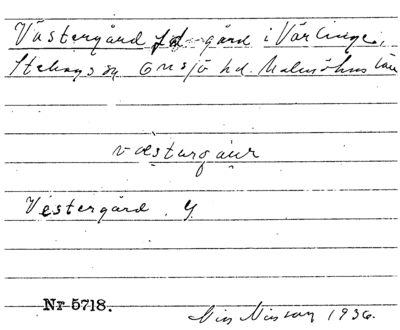 Västergård fd gård i Värlinge,
Stehags sn Onsjö hd. Malmöhus län
væstərgɑ̊ʀ
Vestergård. Y
Nr 5718.
Nils Nilsson 1936.